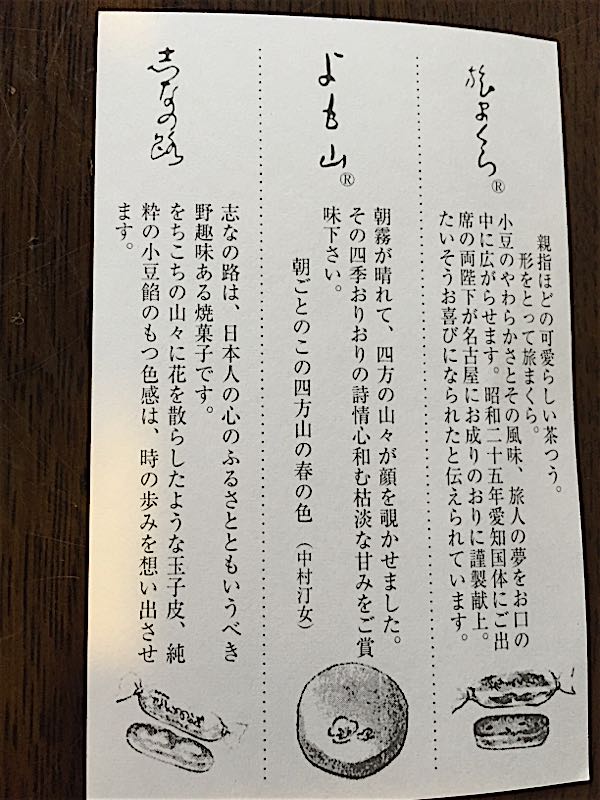 旅まくら®
親指ほどの可愛らしい茶つう。
形をとって旅まくら。
小豆のやわらかさとその風味、旅人の夢をお口の
中に広がらせます。昭和二十五年愛知国体にご出
席の両陛下が名古屋にお成りのおりに謹製献上。
たいそうお喜びになられたと伝えられています。
よも山®
朝霧が晴れて、四方の山々が顔を覗かせました。
その四季おりおりの詩情心和む枯淡な甘みをご賞
味下さい。
朝ごとのこの四方山の春の色（中村汀女）
志なの路
志なの路は、日本人の心のふるさとともいうべき
野趣味ある焼菓子です。
をちこちの山々に花を散らしたような玉子皮、純
粋の小豆餡のもつ色感は、時の歩みを想い出させ
ます。